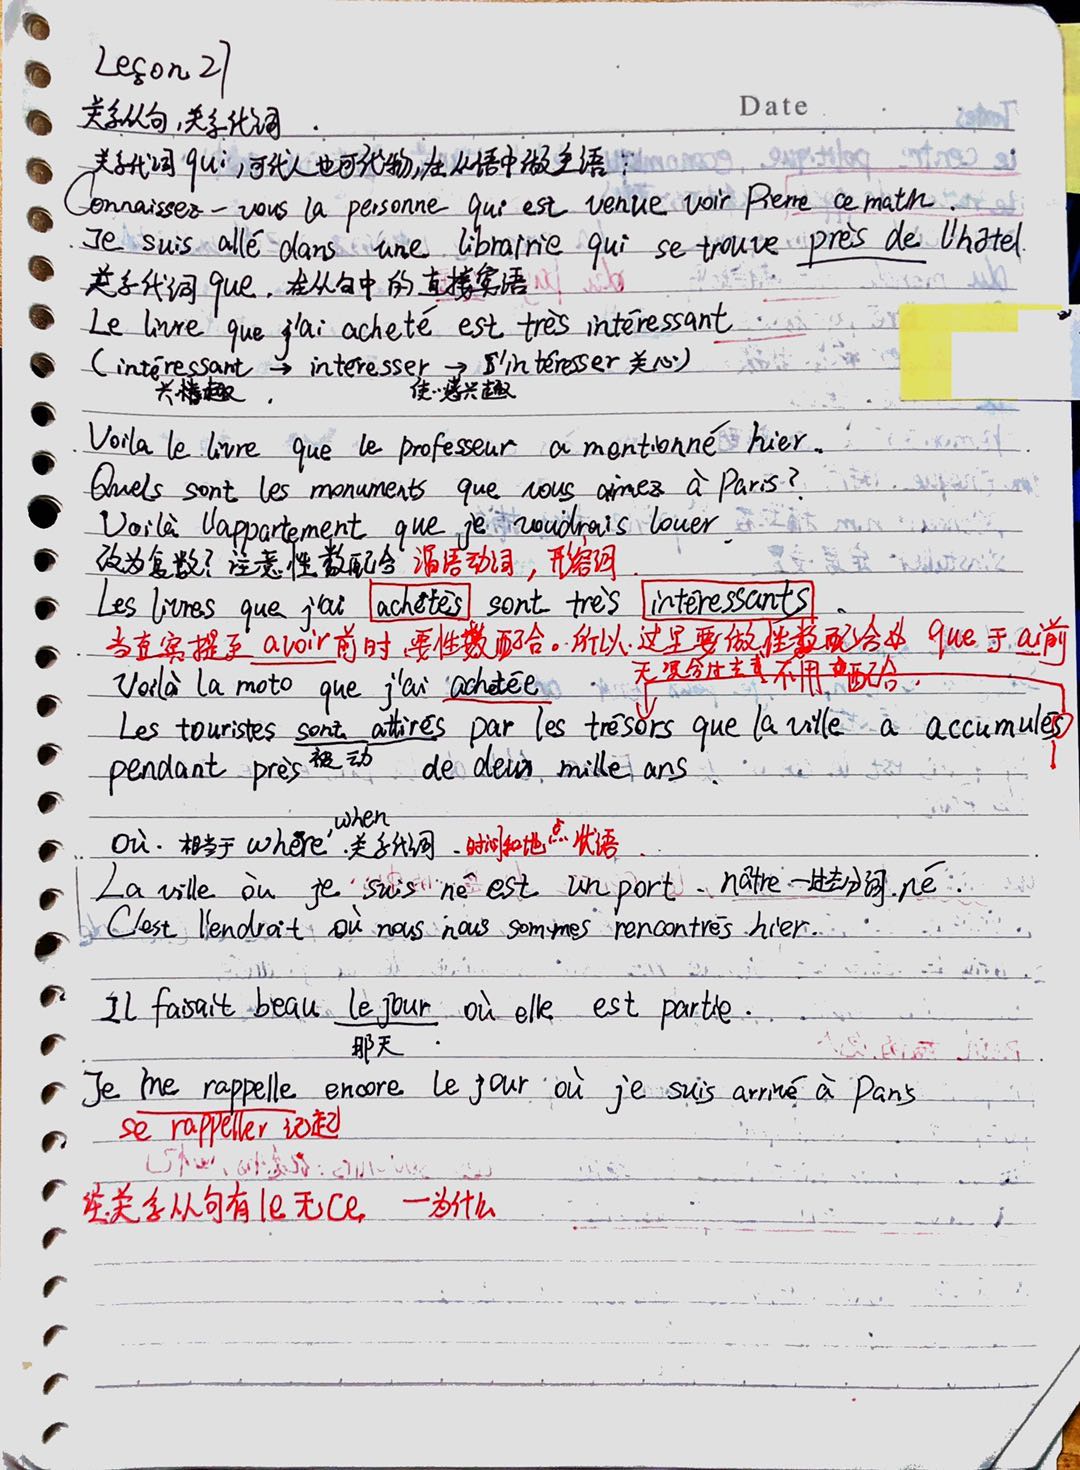 Leçon 21
关系从句,关系代词.
Date
关系代词 qui,可代人也可代物,在从语中做主语:
Connaissez-vous la personne qui est venue voir Pierre ce matin.
Je suis allé dans une librairie qui se trouve près de l'hôtel.
关系代词 que. 在从句中的直接宾语
Le livre que j'ai acheté est très intéressant
(intéressant → intéresser → s'intéresser 关心)
兴趣. 使…感兴趣
Voila le livre que le professeur a mentionné hier.
Quels sont les monuments que vous aimez à Paris?
Voilà l'appartement que je voudrais louer.
改为复数? 注意性数配合 谓语动词, 形容词.
Les livres que j'ai achetés sont très intéressants.
当直宾提至 avoir 前时,要性数配合。所以,这里要做性数配合 que 于 a 前
不用 配合.
Voilà la moto que j'ai achetée
Les touristes sont attirés par les trésors que la ville a accumulés
pendant près de deux mille ans.
被动
où. 相当于 where, when 关系代词. 时间和地点状语.
La ville où je suis né est un port. nâtre 一过去分词. né.
C'est l'endroit où nous nous sommes rencontrés hier.
Il faisait beau le jour où elle est partie.
那天.
Je me rappelle encore le jour où je suis arrivé à Paris
se rappeller 记起
关系从句有 le 无 ce, 一为什么